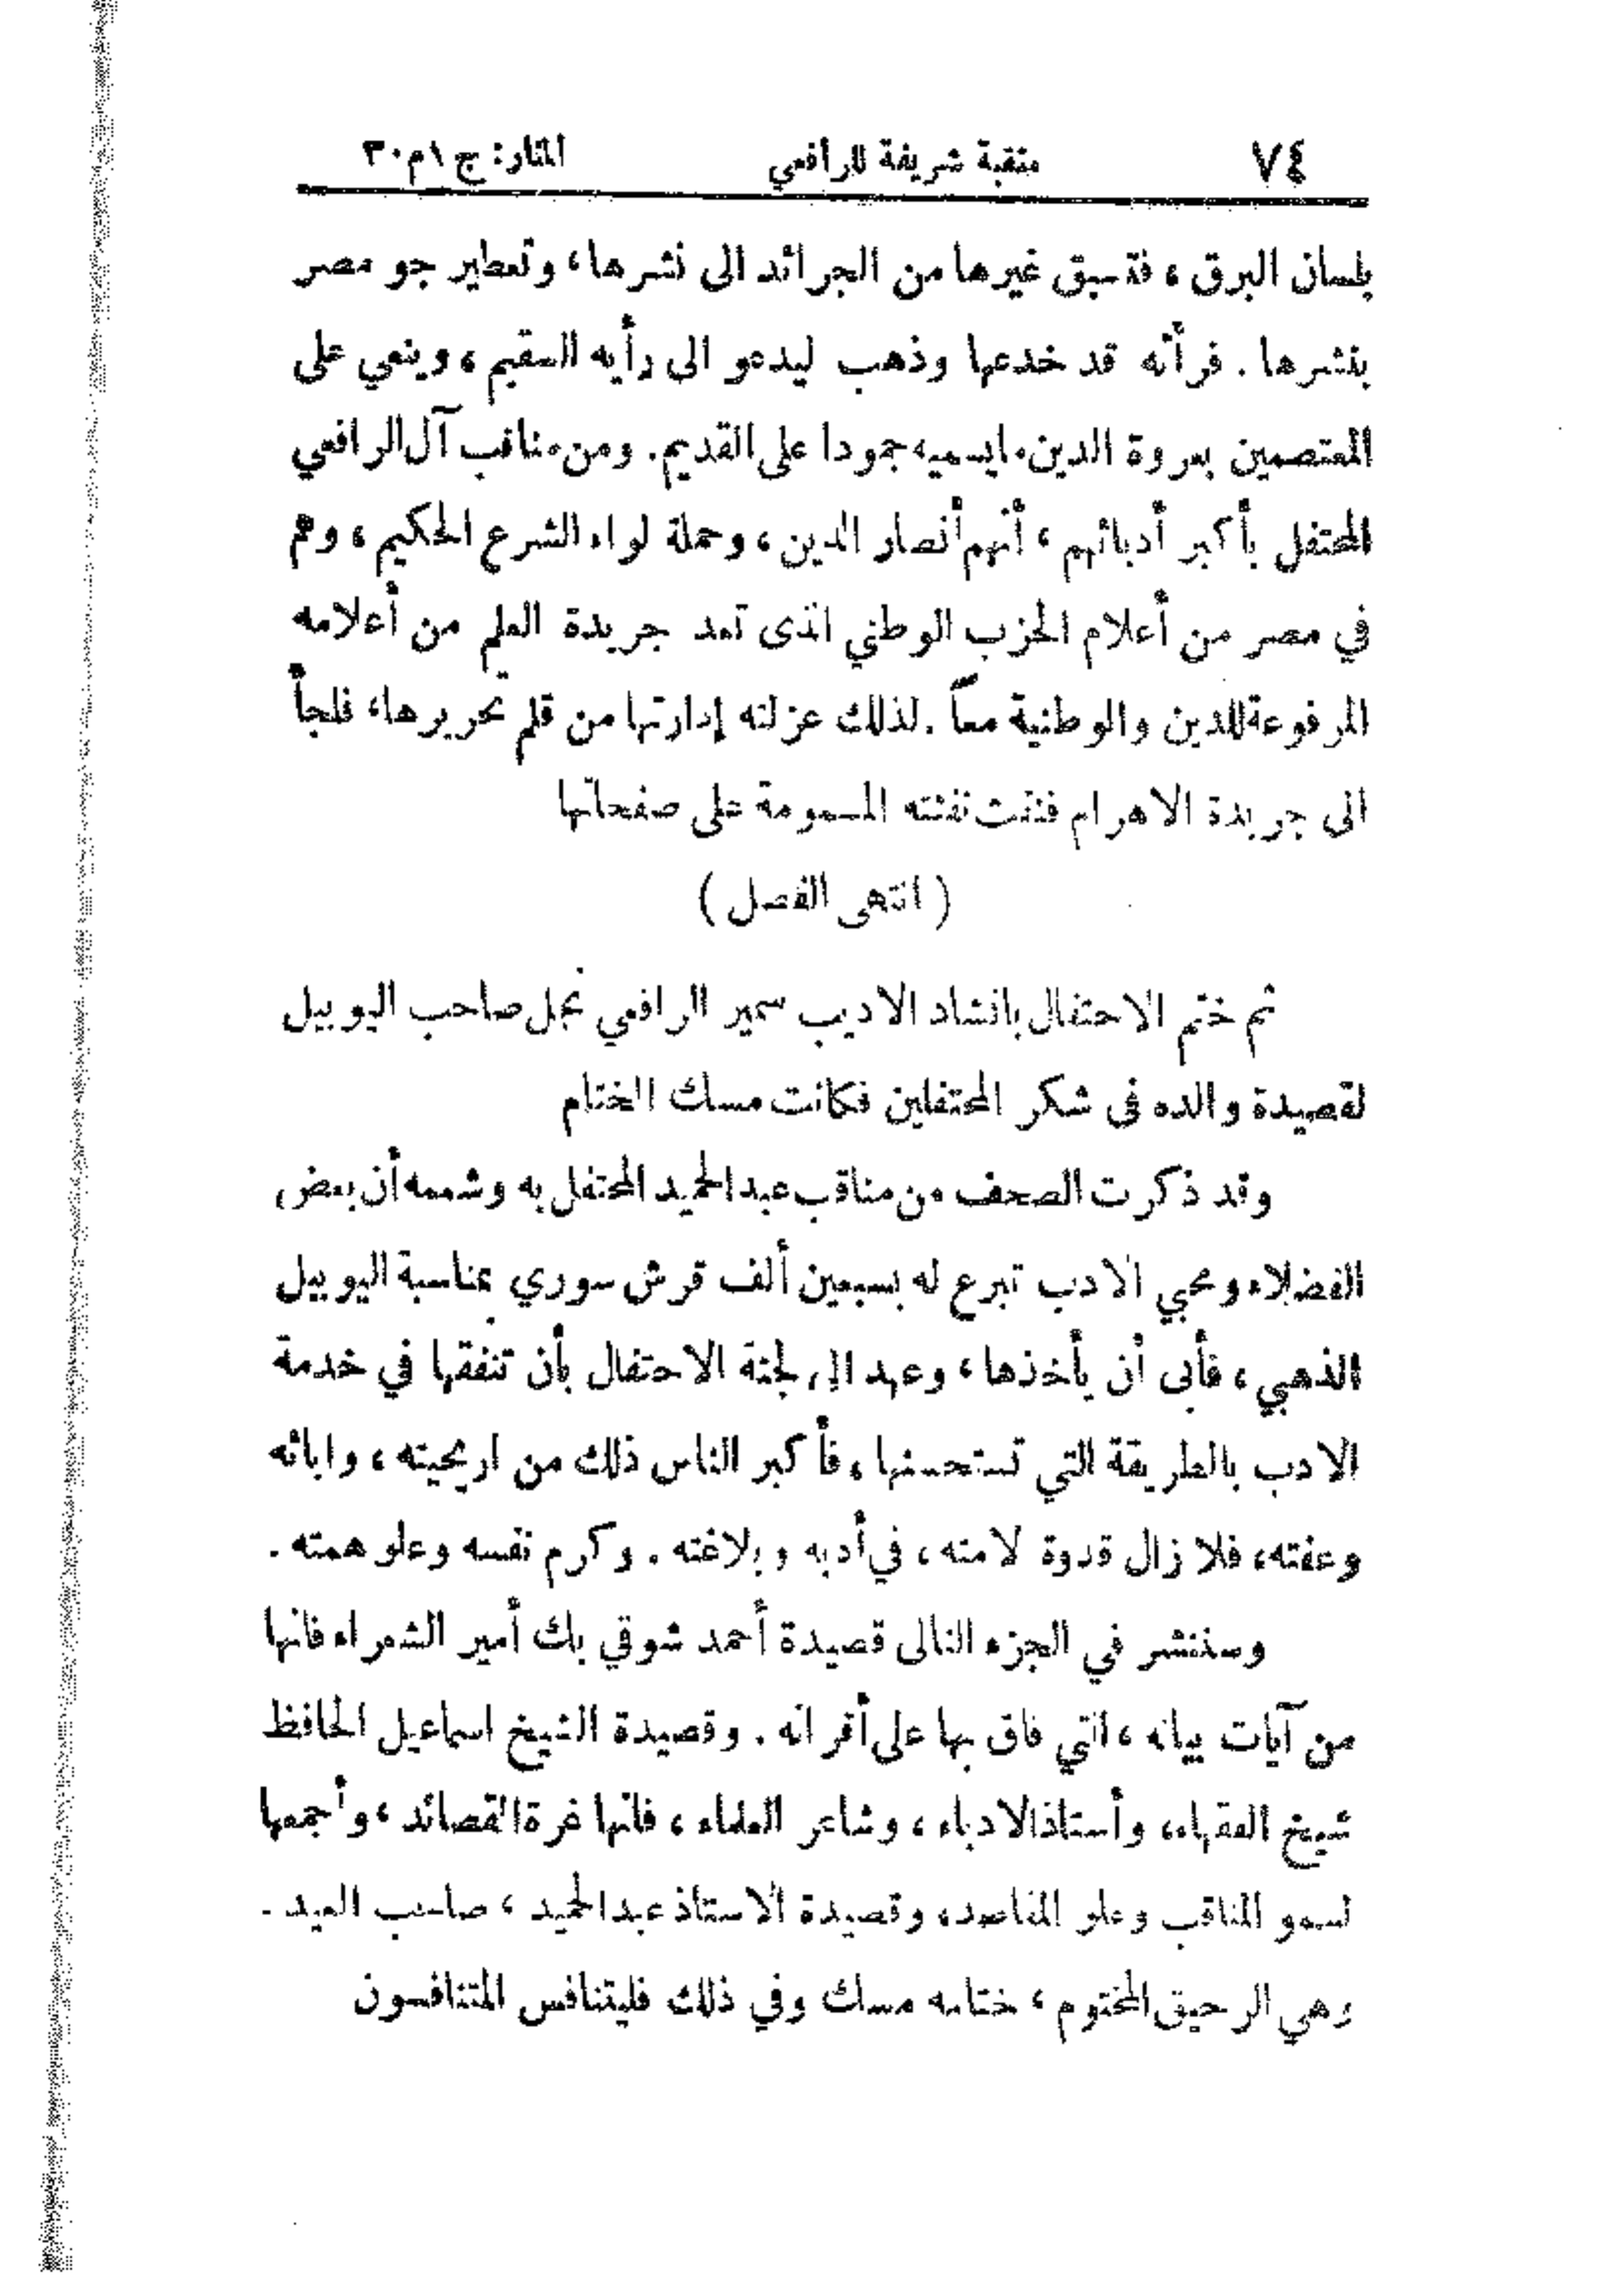 ٧٤ منقبة شريفة للرافعي المنار: ج ١ م ٣٠
بلسان البرق ، فتسبق غيرها من الجرائد الى نشرها، وتعطير جو مصر
بنشرها . فرأته قد خدعها وذهب ليدعو الى رأيه السقيم ، وينعي على
المعتصمين بعروة الدين ما يسميه جمودا على القديم. ومن مناقب آل الرافعي
المحتفل بأكبر أدبائهم ، أنهم أنصار الدين ، وحملة لواء الشرع الحكيم ، وهم
في مصر من أعلام الحزب الوطني الذى تعد جريدة العلم من أعلامه
المرفوعة للدين والوطنية معاً . لذلك عزلته إدارتها من قلم تحريرها، فلجأ
الى جريدة الاهرام فنفث نفثته المسمومة على صفحاتها
( انتهى الفصل )
ثم ختم الاحتفال بانشاد الاديب سمير الرافعي نجل صاحب اليوبيل
لقصيدة والده فى شكر المحتفلين فكانت مسك الختام
وقد ذكرت الصحف من مناقب عبد الحميد المحتفل به وشممه أن بعض
الفضلاء ومحبي الادب تبرع له بسبعين ألف قرش سوري بمناسبة اليوبيل
الذهبي ، فأبى أن يأخذها ، وعهد الى لجنة الاحتفال بأن تنفقها في خدمة
الادب بالطريقة التي تستحسنها ، فأكبر الناس ذلك من اريحيته ، وابائه
وعفته، فلا زال قدوة لامته ، في أدبه وبلاغته . وكرم نفسه وعلو همته .
وسننشر في الجزء التالى قصيدة أحمد شوقي بك أمير الشعراء فانها
من آيات بيانه ، التي فاق بها على أقرانه . وقصيدة الشيخ اسماعيل الحافظ
شيخ الفقهاء، وأستاذ الادباء ، وشاعر العلماء ، فانها غرة القصائد ، وأجمعها
لسمو المناقب وعلو المقاصد، وقصيدة الاستاذ عبد الحميد ، صاحب العيد .
وهي الرحيق المختوم ، ختامه مسك وفي ذلك فليتنافس المتنافسون